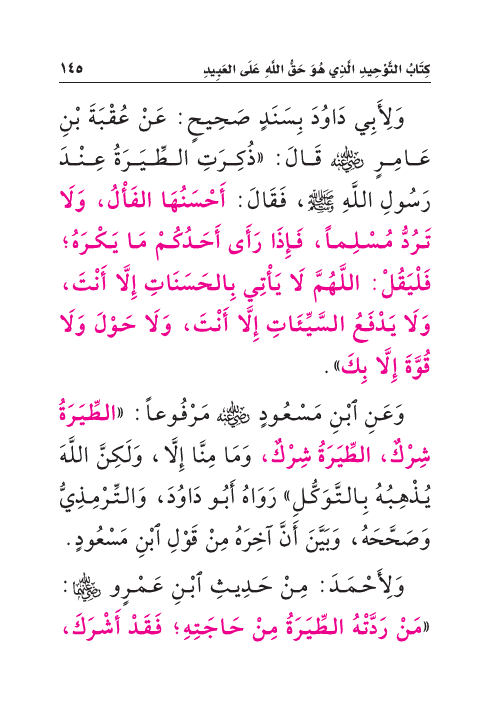 كِتَابُ التَّوْحِيدِ الَّذِي هُوَ حَقُّ اللَّهِ عَلَى العَبِيدِ ١٤٥
وَلِأَبِي دَاوُدَ بِسَنَدٍ صَحِيحٍ: عَنْ عُقْبَةَ بْنِ
عَامِرٍ رضي الله عنه قَالَ: «ذُكِرَتِ الطِّيَرَةُ عِنْدَ
رَسُولِ اللَّهِ ﷺ، فَقَالَ: أَحْسَنُهَا الفَأْلُ، وَلَا
تَرُدُّ مُسْلِماً، فَإِذَا رَأَى أَحَدُكُمْ مَا يَكْرَهُ؛
فَلْيَقُلْ: اللَّهُمَّ لَا يَأْتِي بِالحَسَنَاتِ إِلَّا أَنْتَ،
وَلَا يَدْفَعُ السَّيِّئَاتِ إِلَّا أَنْتَ، وَلَا حَوْلَ وَلَا
قُوَّةَ إِلَّا بِكَ».
وَعَنِ ٱبْنِ مَسْعُودٍ رضي الله عنه مَرْفُوعاً: «الطِّيَرَةُ
شِرْكٌ، الطِّيَرَةُ شِرْكٌ، وَمَا مِنَّا إِلَّا، وَلَكِنَّ اللَّهَ
يُذْهِبُهُ بِالتَّوَكُّلِ» رَوَاهُ أَبُو دَاوُدَ، وَالتِّرْمِذِيُّ
وَصَحَّحَهُ، وَبَيَّنَ أَنَّ آخِرَهُ مِنْ قَوْلِ ٱبْنِ مَسْعُودٍ.
وَلِأَحْمَدَ: مِنْ حَدِيثِ ٱبْنِ عَمْرٍو رضي الله عنهما:
«مَنْ رَدَّتْهُ الطِّيَرَةُ مِنْ حَاجَتِهِ؛ فَقَدْ أَشْرَكَ،